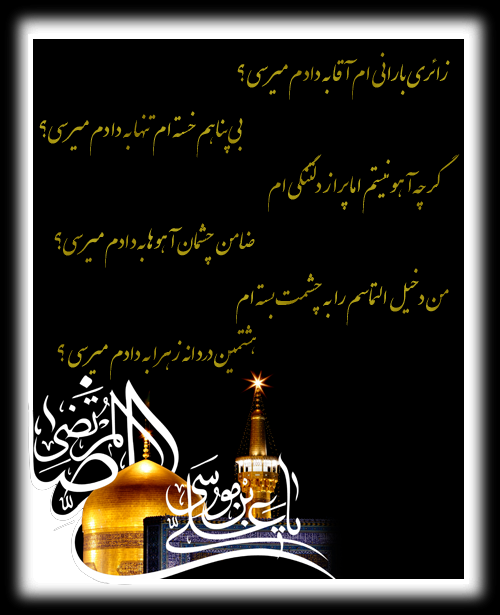 زائری بارانی ام آقا به دادم میرسی؟
بی پناهم خسته ام تنها به دادم میرسی؟
گر چه آهو نیستم اما پر از دلتنگی ام
ضامن چشمان آهوها به دادم میرسی؟
من دخیل التماسم را به چشمت بسته ام
هشتمین دردانه زهرا به دادم میرسی؟
الرضا المرتضی
یا علی بن موسی